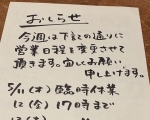 おしらせ
今週は下記の通りに
営業日程を変更させて
頂きます。宜しくお願い
申し上げます。
5/11(木) 臨時休業
12(金) 17時まで